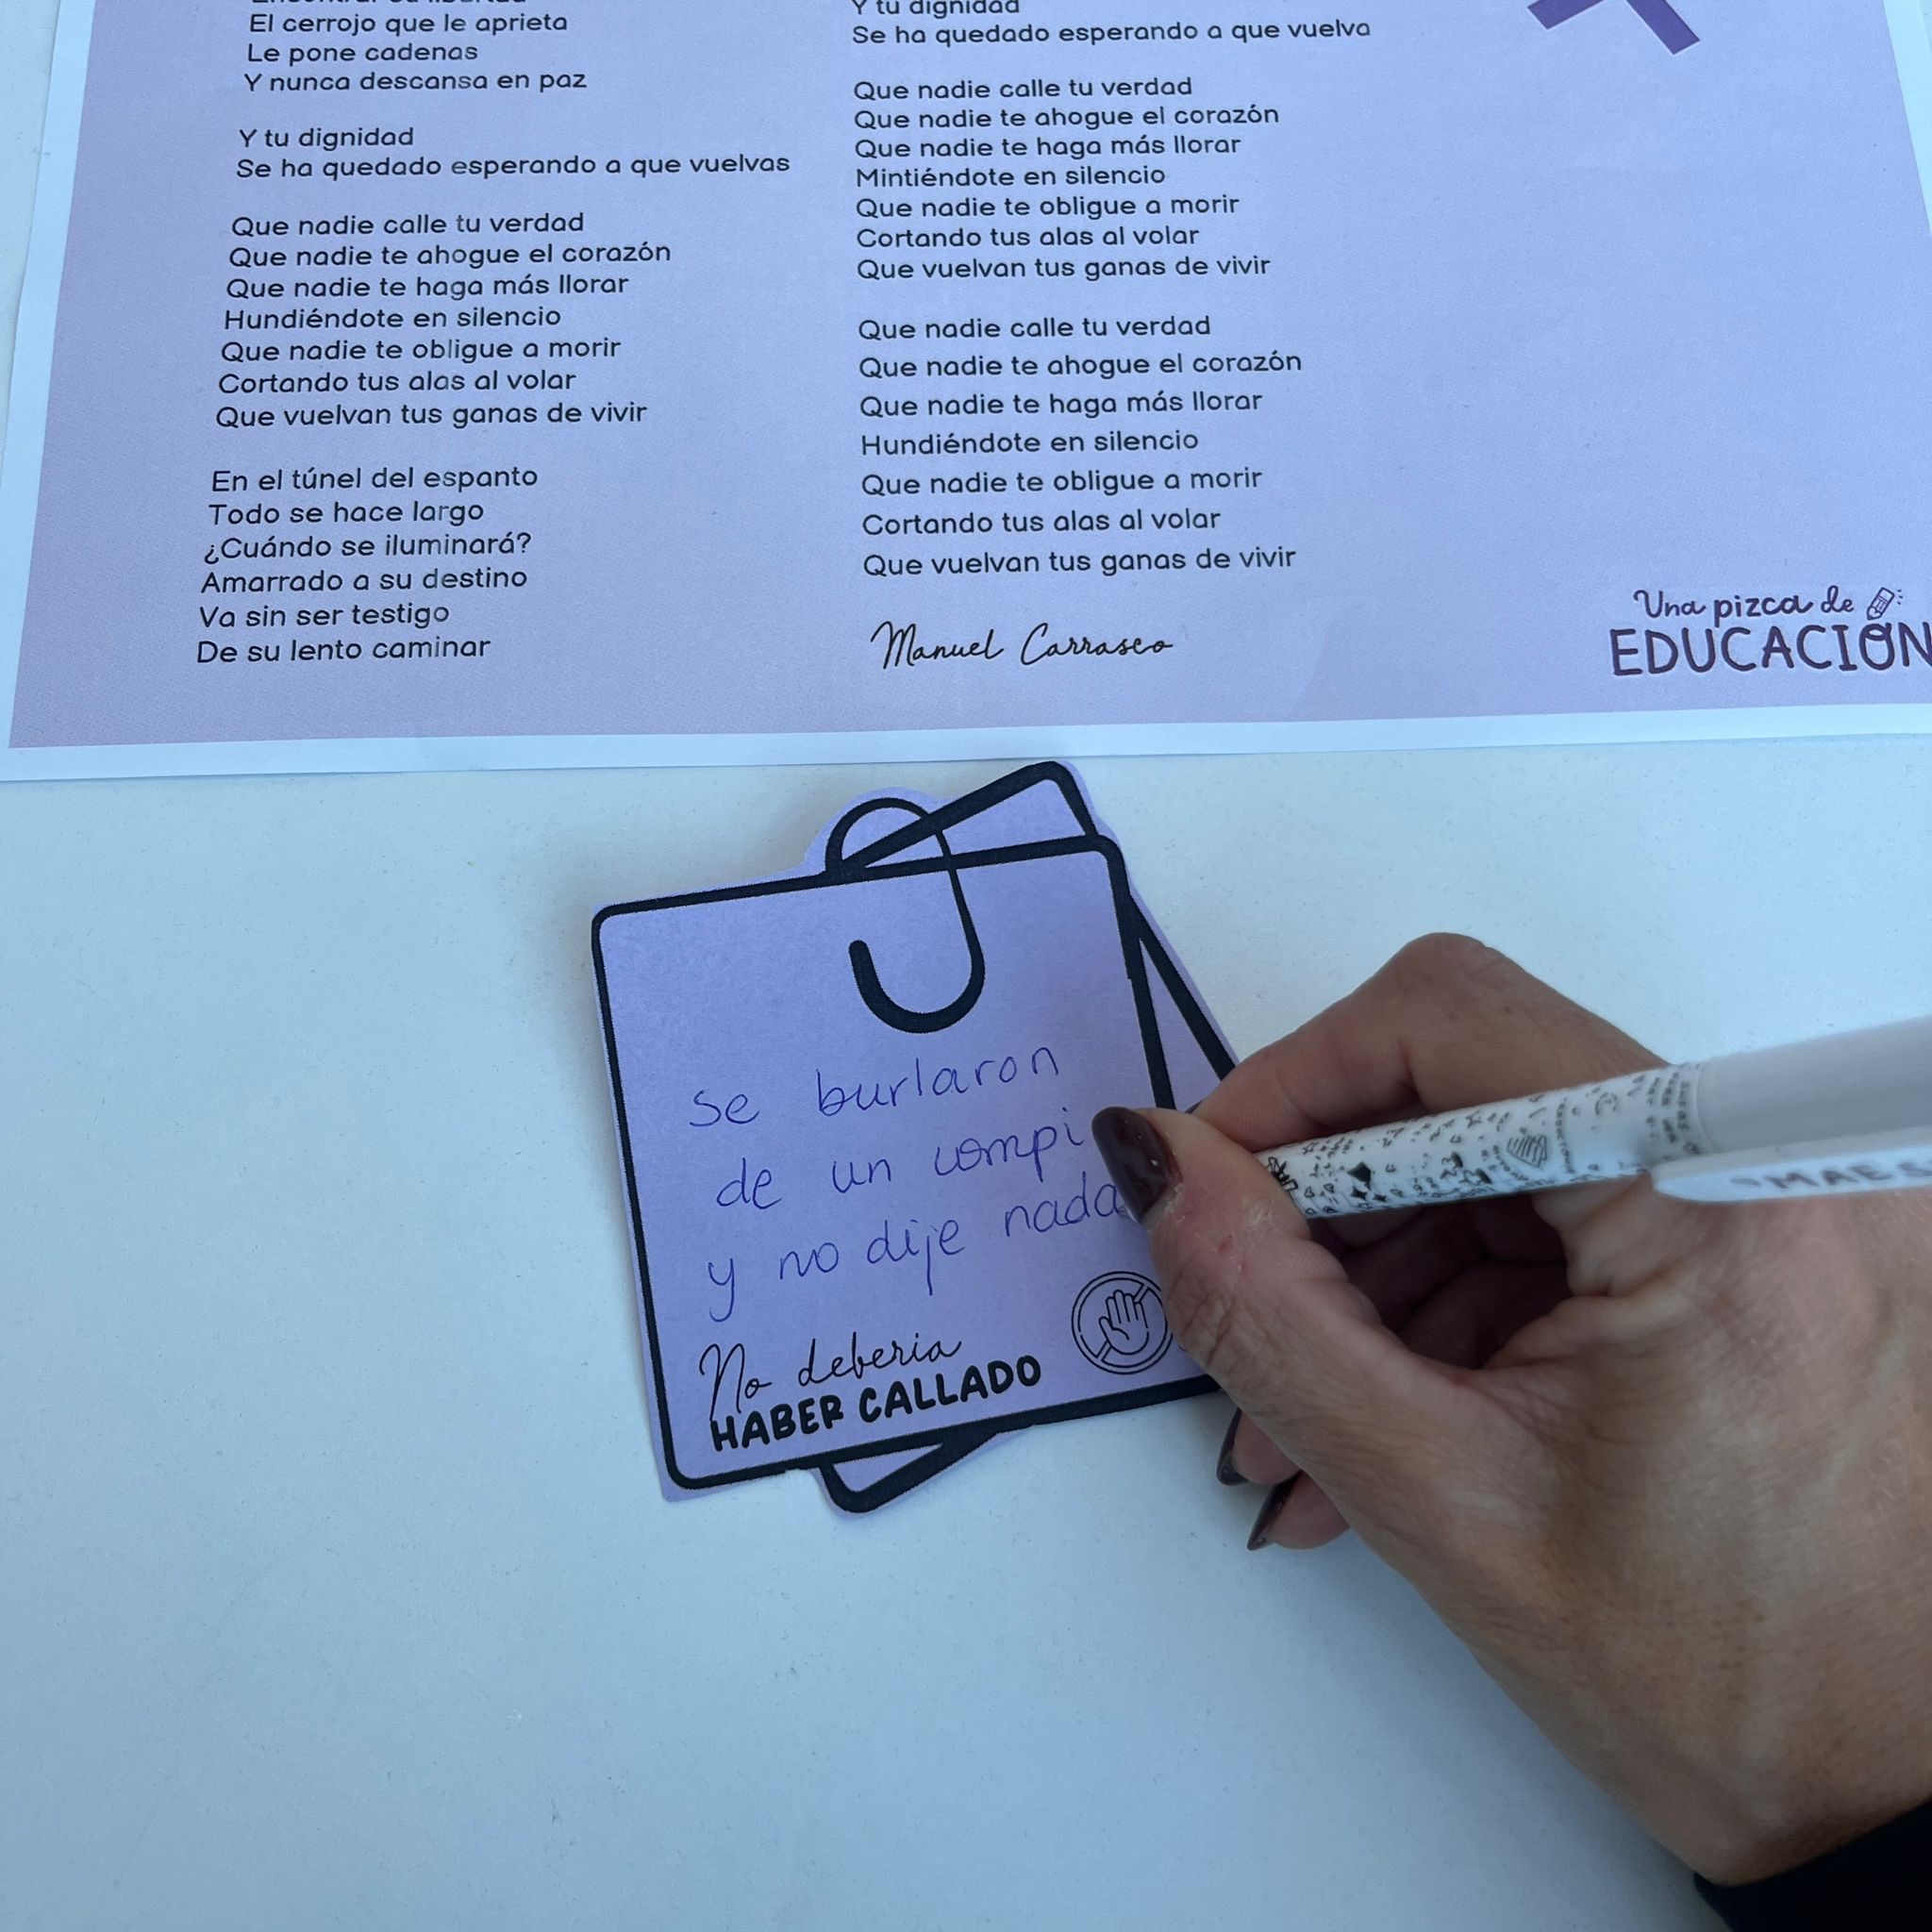 El cerrojo que le aprieta
Le pone cadenas
Y nunca descansa en paz
Y tu dignidad
Se ha quedado esperando a que vuelvas
Que nadie calle tu verdad
Que nadie te ahogue el corazón
Que nadie te haga más llorar
Hundiéndote en silencio
Que nadie te obligue a morir
Cortando tus alas al volar
Que vuelvan tus ganas de vivir
En el túnel del espanto
Todo se hace largo
¿Cuándo se iluminará?
Amarrado a su destino
Va sin ser testigo
De su lento caminar
Y tu dignidad
Se ha quedado esperando a que vuelva
Que nadie calle tu verdad
Que nadie te ahogue el corazón
Que nadie te haga más llorar
Mintiéndote en silencio
Que nadie te obligue a morir
Cortando tus alas al volar
Que vuelvan tus ganas de vivir
Que nadie calle tu verdad
Que nadie te ahogue el corazón
Que nadie te haga más llorar
Hundiéndote en silencio
Que nadie te obligue a morir
Cortando tus alas al volar
Que vuelvan tus ganas de vivir
Manuel Carrasco
Una pizca de
EDUCACIÓN
se burlaron
de un compi
y no dije nada
No debería
HABER CALLADO